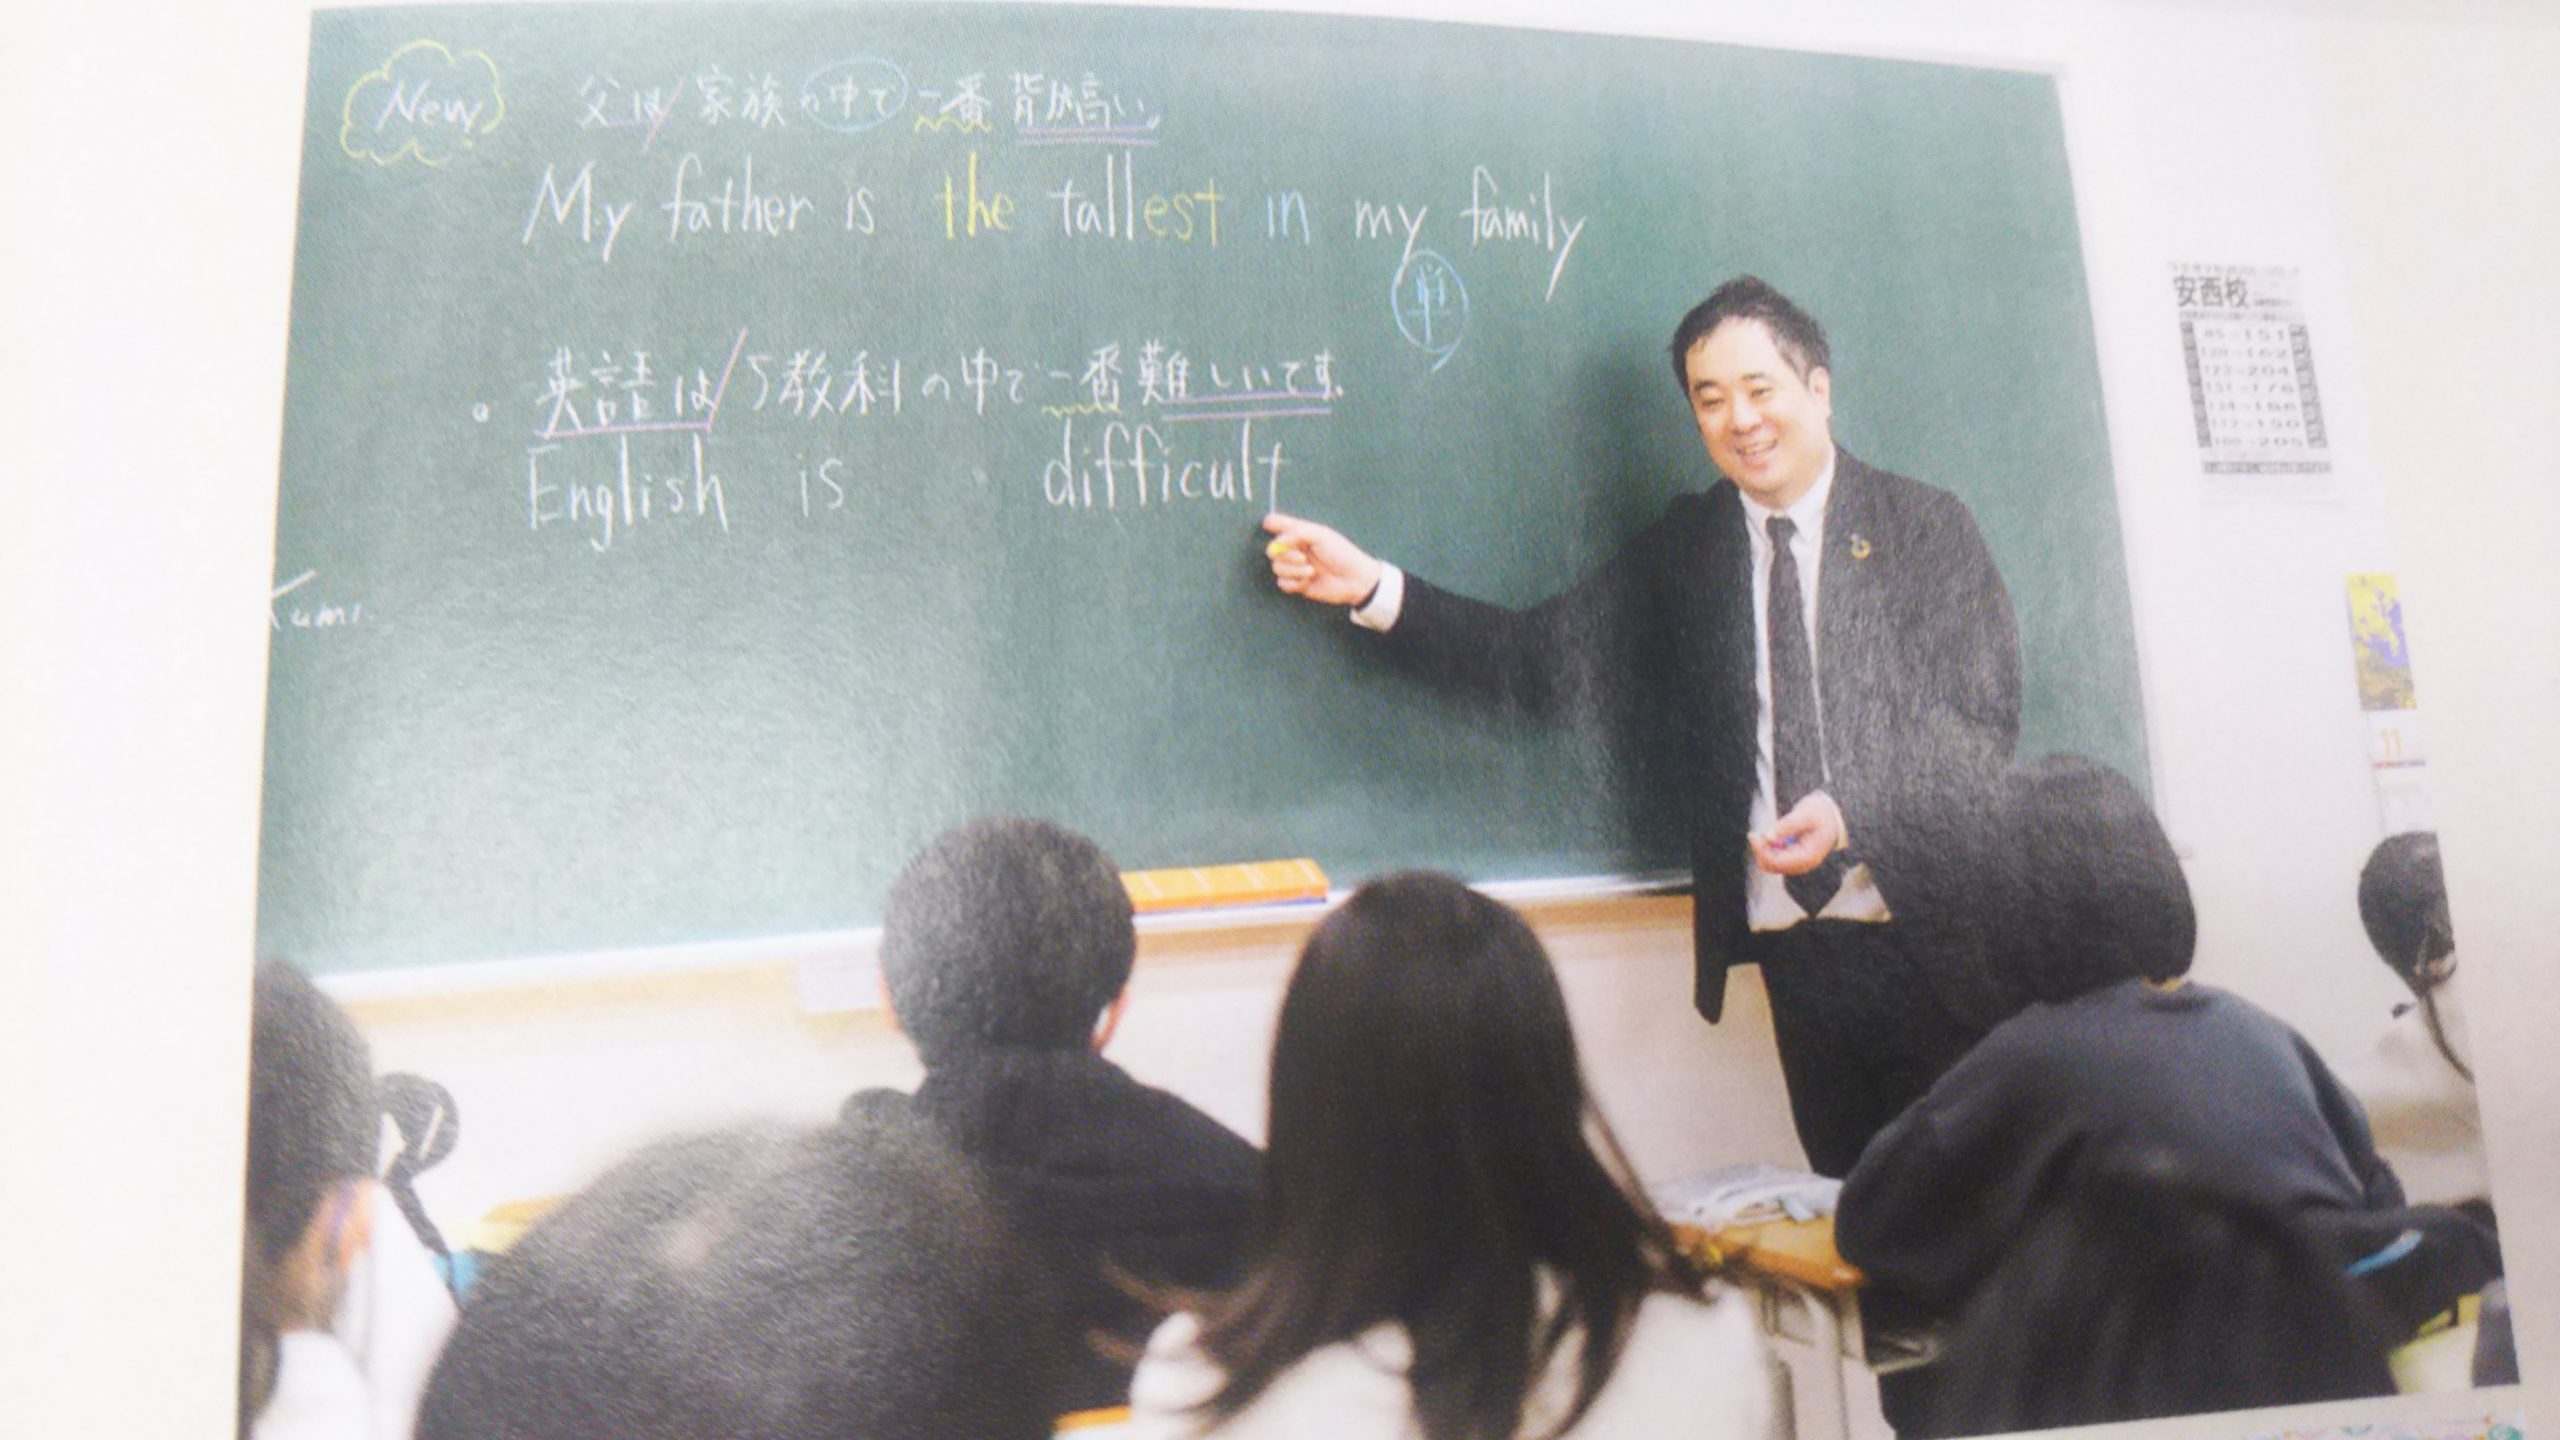 New 父は/家族の中で一番背が高い。
My father is the tallest in my family
単
。英語は/5教科の中で一番難しいです。
English is difficult
Kumi.
安西校
85→151
11